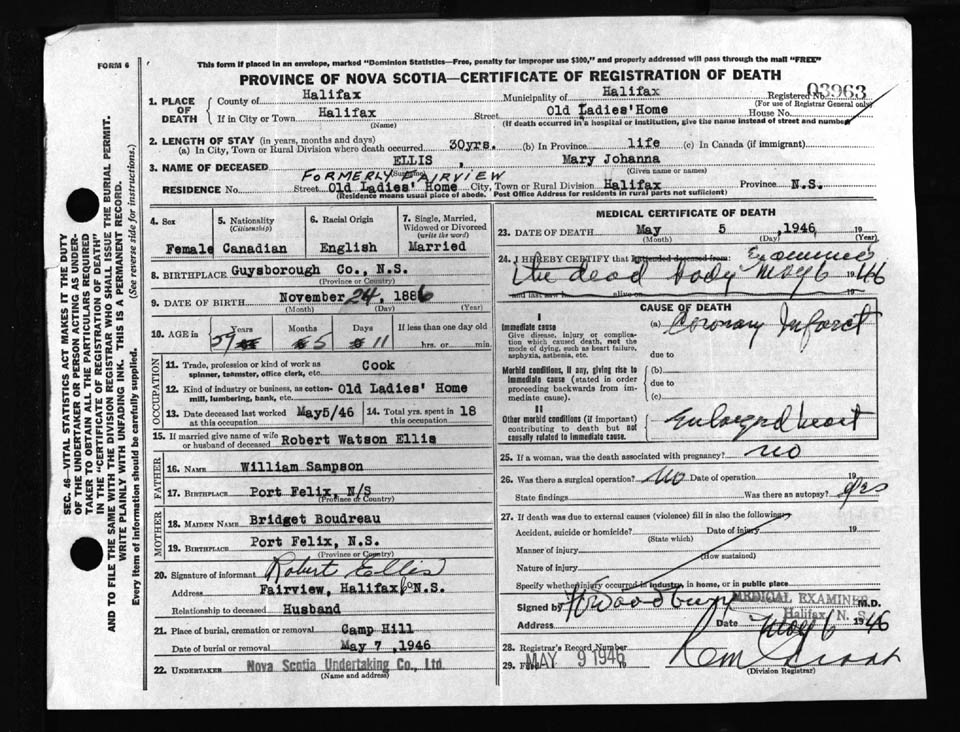 This form if placed in an envelope, marked "Dominion Statistics—Free, penalty for improper use $300," and properly addressed will pass through the mail "FREE"
FORM 6
PROVINCE OF NOVA SCOTIA—CERTIFICATE OF REGISTRATION OF DEATH
Registered No. 03963
(For use of Registrar General only)
1. PLACE OF DEATH { County of Halifax Municipality of Halifax
If in City or Town Halifax Street Old Ladies' Home House No.
(Name) (If death occurred in a hospital or institution, give the name instead of street and number)
2. LENGTH OF STAY (in years, months and days)
(a) In City, Town or Rural Division where death occurred 30yrs. (b) In Province life (c) In Canada (if immigrant)
3. NAME OF DECEASED ELLIS, Mary Johanna
(Surname) (Given name or names)
FORMERLY FAIRVIEW
RESIDENCE No. Street Old Ladies' Home City, Town or Rural Division Halifax Province N.S.
(Residence means usual place of abode. Post Office Address for residents in rural parts not sufficient)
4. Sex Female
5. Nationality (Citizenship) Canadian
6. Racial Origin English
7. Single, Married, Widowed or Divorced (write the word) Married
8. BIRTHPLACE Guysborough Co., N.S.
(Province or Country)
9. DATE OF BIRTH November 24, 1886
(Month) (Day) (Year)
10. AGE in Years 59 Months 5 Days 11 If less than one day old hrs. or min.
OCCUPATION
11. Trade, profession or kind of work as spinner, teamster, office clerk, etc. Cook
12. Kind of industry or business, as cotton-mill, lumbering, bank, etc. Old Ladies' Home
13. Date deceased last worked at this occupation May5/46
14. Total yrs. spent in this occupation 18
15. If married give name of wife or husband of deceased Robert Watson Ellis
FATHER
16. NAME William Sampson
17. BIRTHPLACE Port Felix, N/S
(Province or Country)
MOTHER
18. MAIDEN NAME Bridget Boudreau
19. BIRTHPLACE Port Felix, N.S.
(Province or Country)
20. Signature of informant Robert Ellis
Address Fairview, Halifax Co N.S.
Relationship to deceased Husband
21. Place of burial, cremation or removal Camp Hill
Date of burial or removal May 7, 1946
22. UNDERTAKER Nova Scotia Undertaking Co., Ltd.
(Name and address)
MEDICAL CERTIFICATE OF DEATH
23. DATE OF DEATH May 5 1946, 19
(Month) (Day) (Year)
24. I HEREBY CERTIFY that I attended deceased from: Examined
the dead body May 6 1946
and last saw h alive on 19
CAUSE OF DEATH
I
Immediate cause
Give disease, injury or complication which caused death, not the mode of dying, such as heart failure, asphyxia, asthenia, etc.
(a) Coronary Infarct
due to
Morbid conditions, if any, giving rise to immediate cause (stated in order proceeding backwards from immediate cause).
(b)
due to
(c)
II
Other morbid conditions (if important) contributing to death but not causally related to immediate cause.
Enlarged heart
25. If a woman, was the death associated with pregnancy? no
26. Was there a surgical operation? No Date of operation 19
State findings Was there an autopsy? yes
27. If death was due to external causes (violence) fill in also the following:
Accident, suicide or homicide? Date of injury 19
(State which)
Manner of injury
(How sustained)
Nature of injury
Specify whether injury occurred in industry, in home, or in public place
Signed by Woodbury M.D.
MEDICAL EXAMINER
Halifax N. S.
Address Date May 6 1946
28. Registrar's Record Number
29. Filed MAY 9 1946 19
(Division Registrar)
SEC. 46—VITAL STATISTICS ACT MAKES IT THE DUTY
OF THE UNDERTAKER OR PERSON ACTING AS UNDER-
TAKER TO OBTAIN ALL THE PARTICULARS REQUIRED
IN THE "CERTIFICATE OF REGISTRATION OF DEATH"
AND TO FILE THE SAME WITH THE DIVISION REGISTRAR WHO SHALL ISSUE THE BURIAL PERMIT.
WRITE PLAINLY WITH UNFADING INK. THIS IS A PERMANENT RECORD.
Every item of information should be carefully supplied. (See reverse side for instructions.)